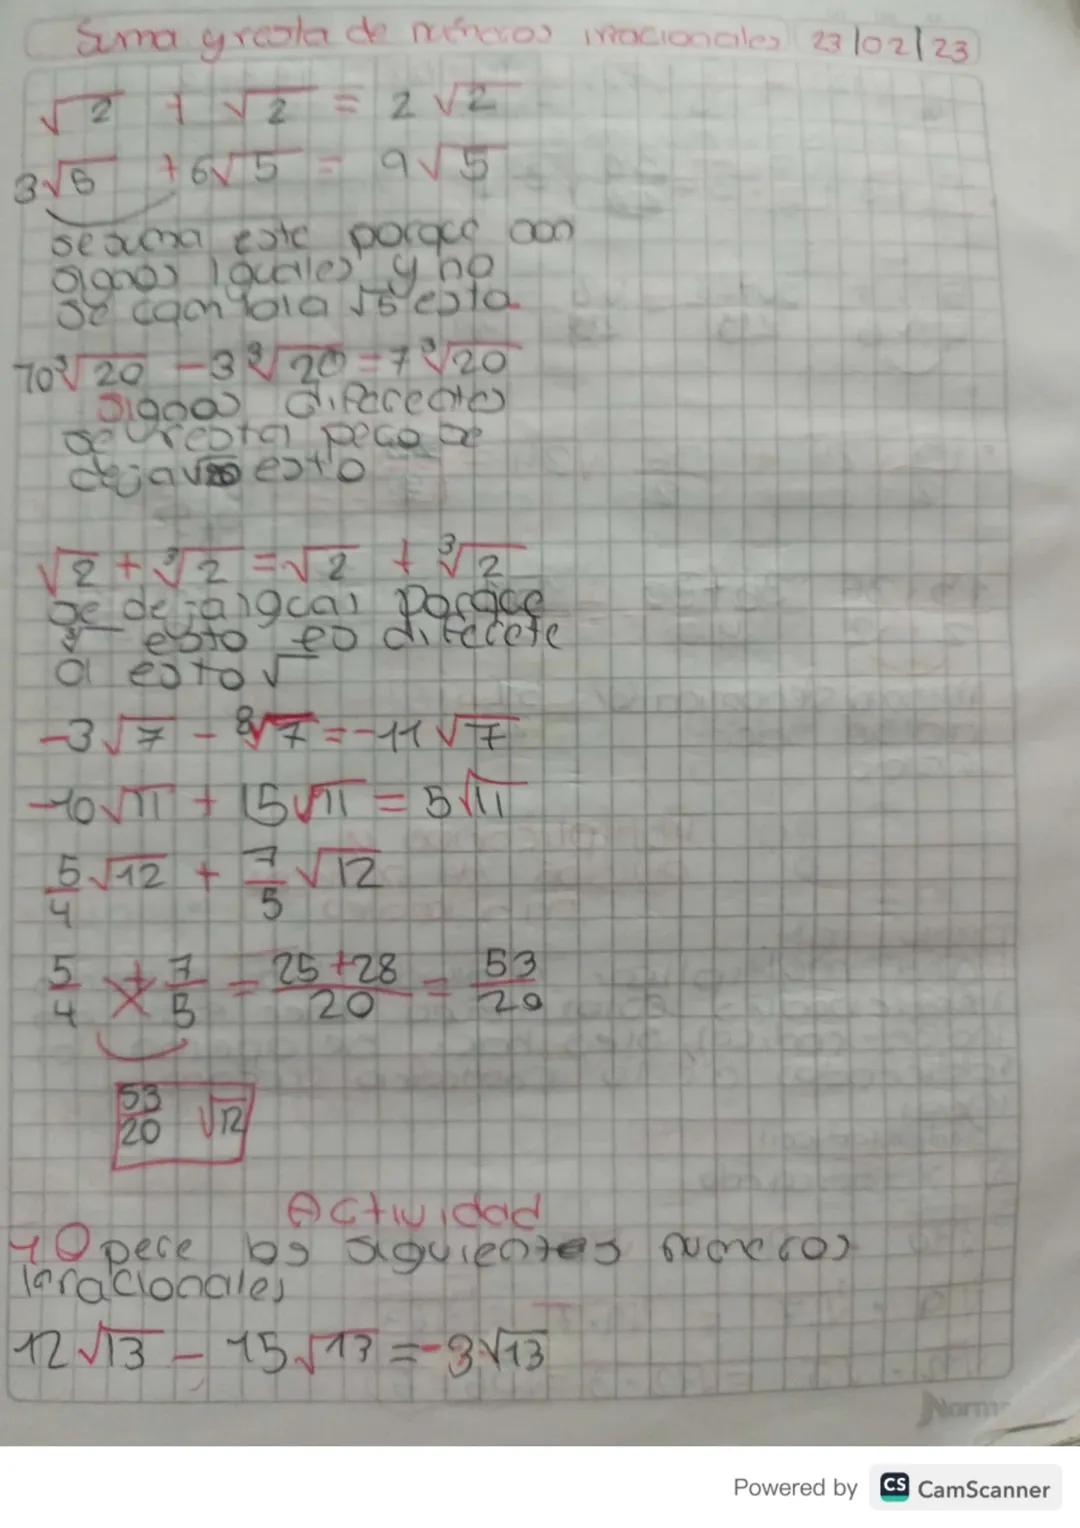 Suma y resta de números irracionales 23/02/23
√2 + √2 = 2√2
3√5 + 6√5 = 9√5
se suma este porque son
signos iguales y no
se cambia √5 esta
10∛20 - 3∛20 = 7∛20
signos diferentes
se resta pero se
deja √20 esto
√2 + ∛2 = √2 + ∛2
se deja igual porque
∛ esto es diferete
a esto √
-3√7 - 8√7 = -11√7
-10√11 + 15√11 = 5√11
5/4 √12 + 7/5 √12
5/4 + 7/5 = 25+28/20 = 53/20
53/20 √12
Actividad
1 Opere los siguientes numeros
irracionales
12√13 - 15√13 = -3√13
Norma
Powered by CS CamScanner